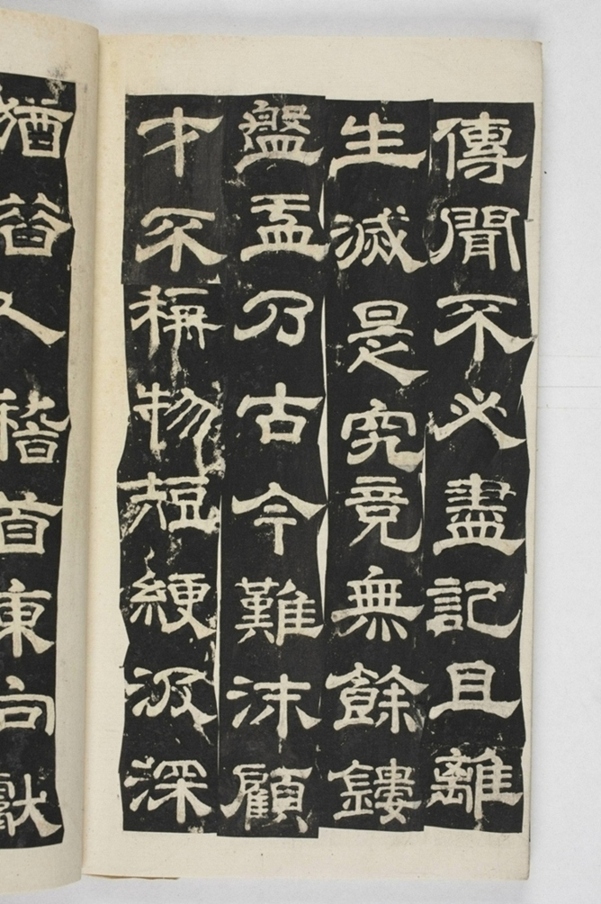 傳聞不必盡記且離
生滅是究竟無餘鏤
盤盂乃古今難沫顧
才不稱物短綆汲深
猶久稽首東向獻